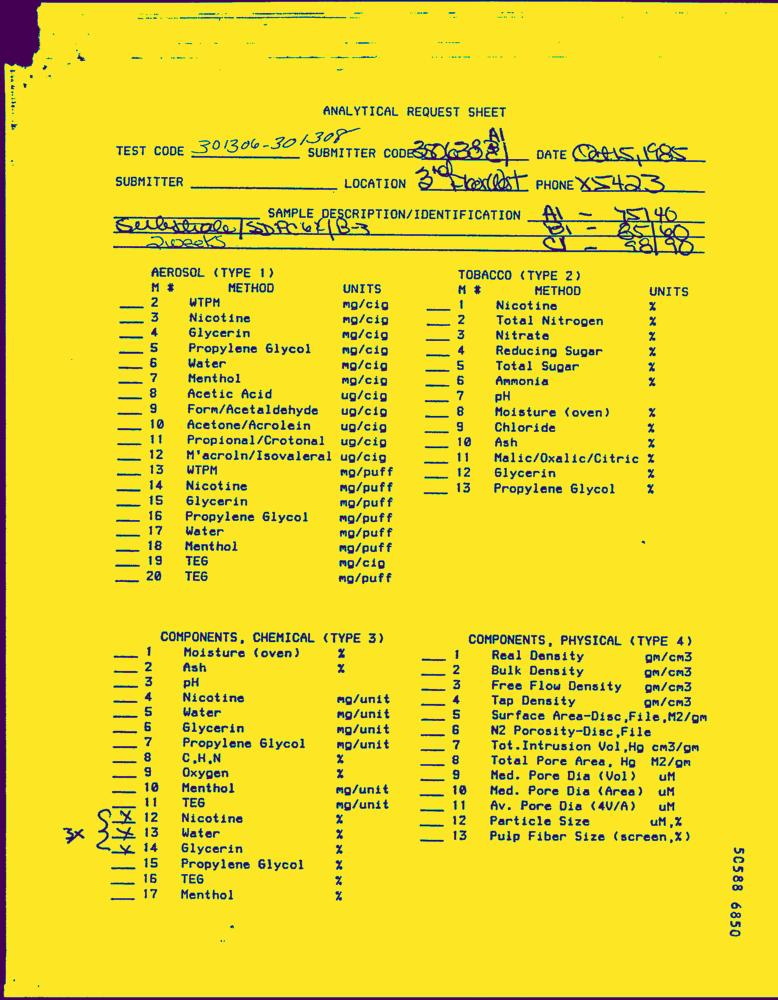 ANALYTICAL REQUEST SHEET
TEST CODE 301306-301308 SUBMITTER CODE A1 DATE Oct 15, 1985
SUBMITTER LOCATION 3rd Floor West PHONE X5423
SAMPLE DESCRIPTION/IDENTIFICATION A1 - 75/40
Substrate/ B1 - 85/60
2 weeks C1 - 98/90
AEROSOL (TYPE 1)
M # METHOD UNITS
2 WTPM mg/cig
3 Nicotine mg/cig
4 Glycerin mg/cig
5 Propylene Glycol mg/cig
6 Water mg/cig
7 Menthol mg/cig
8 Acetic Acid ug/cig
9 Form/Acetaldehyde ug/cig
10 Acetone/Acrolein ug/cig
11 Propional/Crotonal ug/cig
12 M'acroln/Isovaleral ug/cig
13 WTPM mg/puff
14 Nicotine mg/puff
15 Glycerin mg/puff
16 Propylene Glycol mg/puff
17 Water mg/puff
18 Menthol mg/puff
19 TEG mg/cig
20 TEG mg/puff
TOBACCO (TYPE 2)
M # METHOD UNITS
1 Nicotine %
2 Total Nitrogen %
3 Nitrate %
4 Reducing Sugar %
5 Total Sugar %
6 Ammonia %
7 pH
8 Moisture (oven) %
9 Chloride %
10 Ash %
11 Malic/Oxalic/Citric %
12 Glycerin %
13 Propylene Glycol %
COMPONENTS, CHEMICAL (TYPE 3)
1 Moisture (oven) %
2 Ash %
3 pH
4 Nicotine mg/unit
5 Water mg/unit
6 Glycerin mg/unit
7 Propylene Glycol mg/unit
8 C,H,N %
9 Oxygen %
10 Menthol mg/unit
11 TEG mg/unit
X 12 Nicotine %
3X X 13 Water %
X 14 Glycerin %
15 Propylene Glycol %
16 TEG %
17 Menthol %
COMPONENTS, PHYSICAL (TYPE 4)
1 Real Density gm/cm3
2 Bulk Density gm/cm3
3 Free Flow Density gm/cm3
4 Tap Density gm/cm3
5 Surface Area-Disc,File,M2/gm
6 N2 Porosity-Disc,File
7 Tot.Intrusion Vol,Hg cm3/gm
8 Total Pore Area, Hg M2/gm
9 Med. Pore Dia (Vol) uM
10 Med. Pore Dia (Area) uM
11 Av. Pore Dia (4V/A) uM
12 Particle Size uM,%
13 Pulp Fiber Size (screen,%)
50588 6850